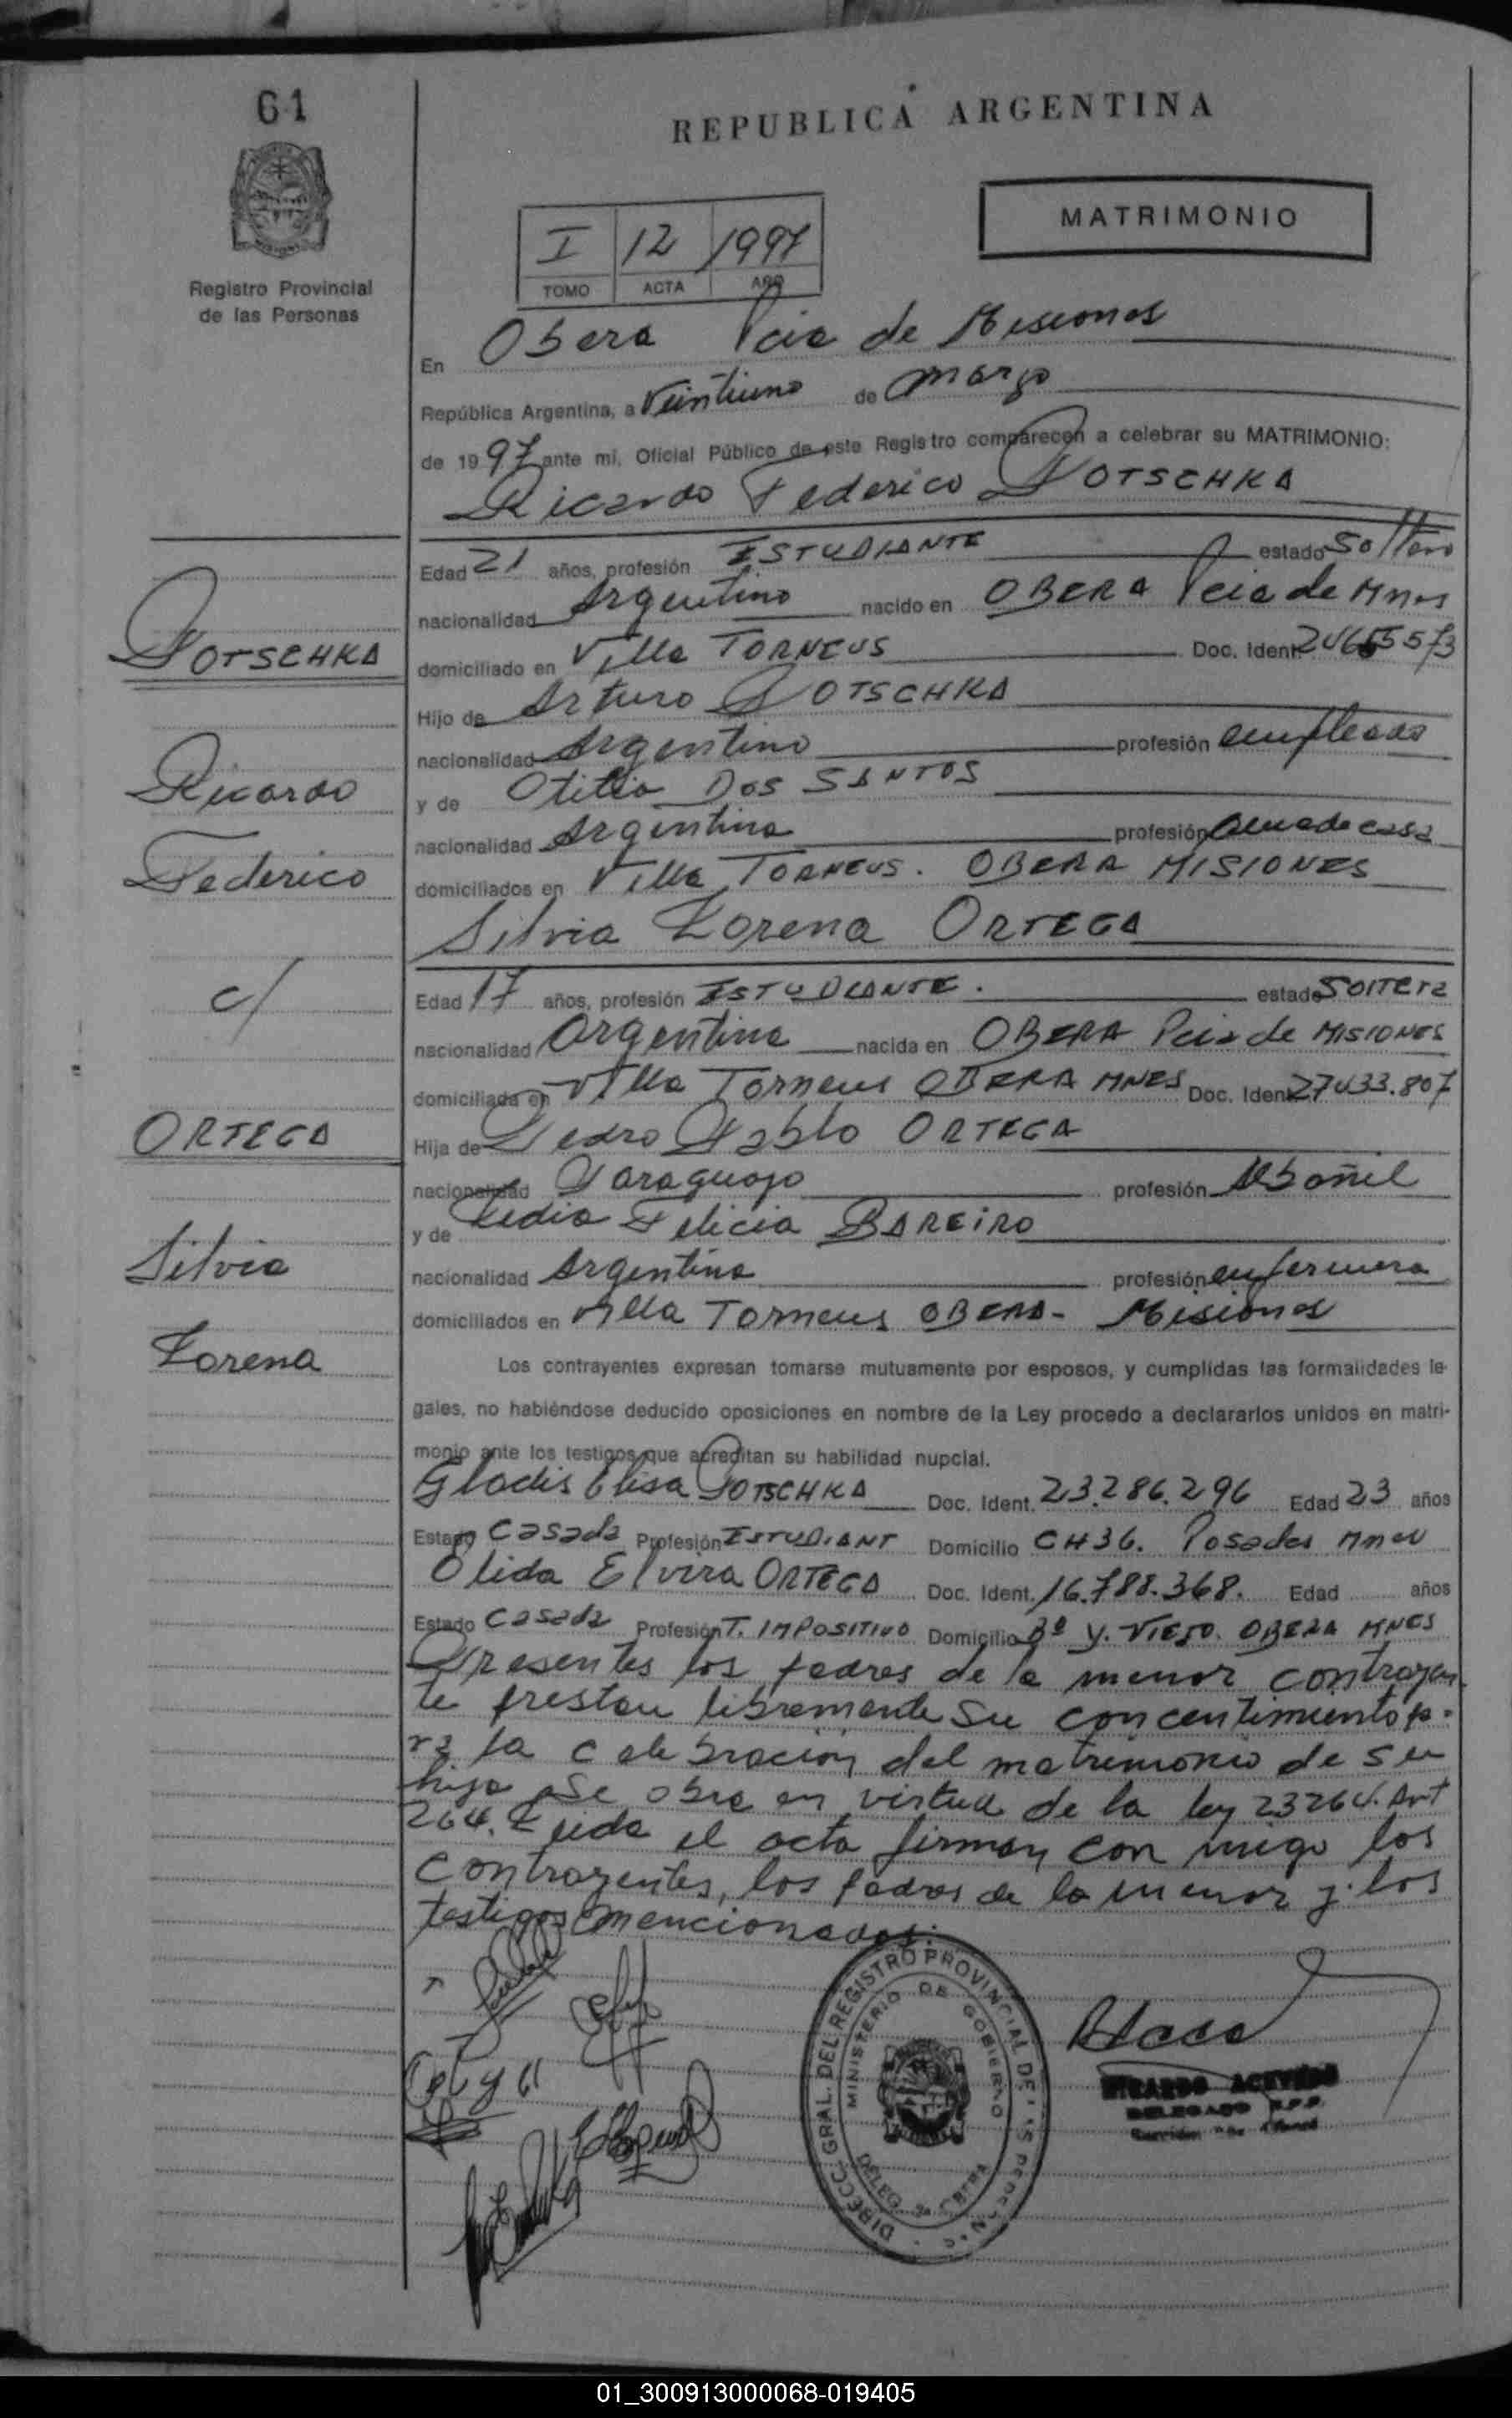 61
REPUBLICA ARGENTINA
MATRIMONIO
I 12 1997
TOMO ACTA AÑO
Registro Provincial
de las Personas
En Obera Pcia de Misiones
República Argentina, a Veintiuno de marzo
de 1997 ante mí, Oficial Público de este Registro comparecen a celebrar su MATRIMONIO:
Ricardo Federico POTSCHKA
Edad 21 años, profesión ESTUDIANTE estado Soltero
nacionalidad Argentino nacido en OBERA Pcia de Mnes
domiciliado en Villa TORNEUS Doc. Ident.
Hijo de Arturo POTSCHKA
nacionalidad Argentino profesión empleado
y de Otilia DOS SANTOS
nacionalidad Argentina profesión Ama de casa
domiciliados en Villa TORNEUS. OBERA MISIONES
Silvia Lorena ORTEGA
Edad 17 años, profesión ESTUDIANTE. estado SOLTERA
nacionalidad Argentina nacida en OBERA Pcia de MISIONES
domiciliada en Villa Torneus OBERA MNES Doc. Ident. 27433.807
Hija de Pedro Pablo ORTEGA
nacionalidad Paraguayo profesión Albañil
y de Ledia Felicia BAREIRO
nacionalidad Argentina profesión enfermera
domiciliados en Villa Torneus OBERA- Misiones
Los contrayentes expresan tomarse mutuamente por esposos, y cumplidas las formalidades le-
gales, no habiéndose deducido oposiciones en nombre de la Ley procedo a declararlos unidos en matri-
monio ante los testigos que acreditan su habilidad nupcial.
Gladis Elisa POTSCHKA Doc. Ident. 23.286.296 Edad 23 años
Estado Casada Profesión ESTUDIANT Domicilio CH36. Posadas Mnes
Elida Elvira ORTEGA Doc. Ident. 16.788.368. Edad años
Estado Casada Profesión T. IMPOSITIVO Domicilio Bº Y. VIEJO. OBERA MNES
Presentes los padres de la menor contrayen
te prestan libremente su concentimiento pa-
ra la celebracion del matrimonio de su
hija Se obra en virtud de la ley 23264. Art
264. Leida el acta firman con migo los
contrayentes, los padres de la menor y los
testigos mencionados.
POTSCHKA
Ricardo
Federico
c/
ORTEGA
Silvia
Lorena
DIRECC. GRAL. DEL REGISTRO PROVINCIAL DE LAS PERSONAS
MINISTERIO DE GOBIERNO
DELEG.
ACEVEDO
DELEGADO R.P.P.
01_300913000068-019405